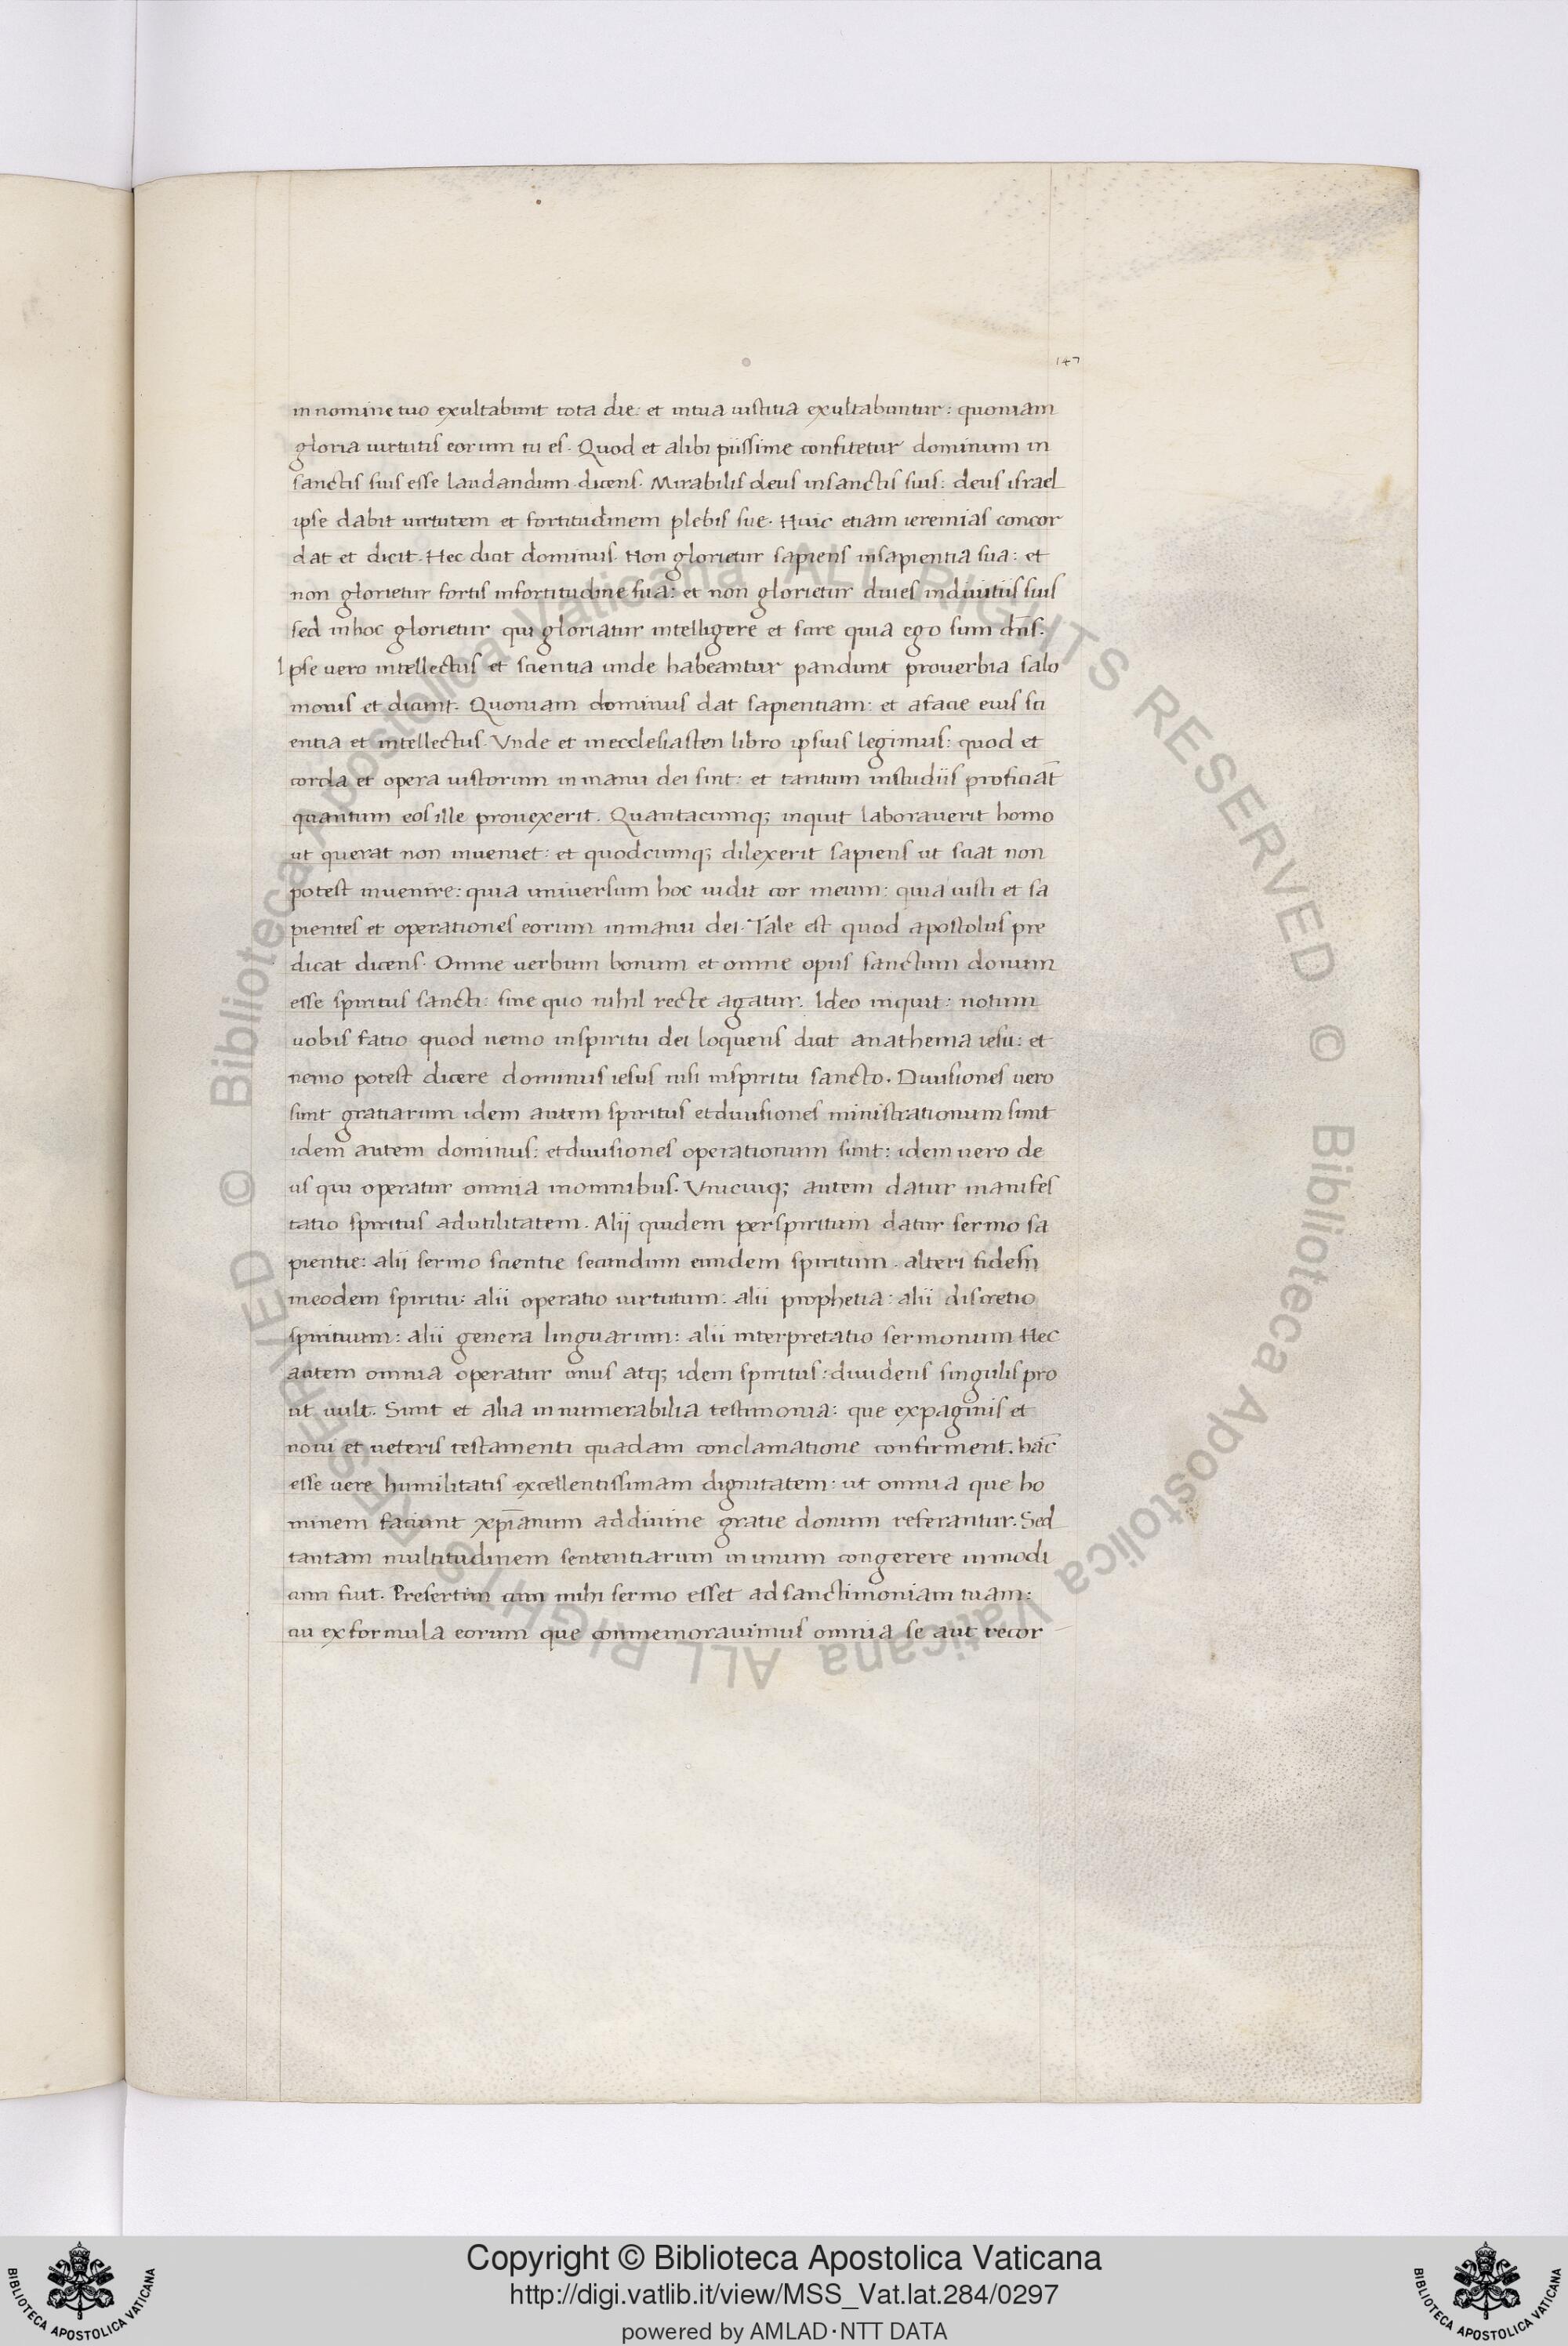 147
in nomine tuo exultabunt tota die: et in tua iustitia exultabuntur: quoniam
gloria uirtutis eorum tu es. Quod et alibi piissime confitetur dominum in
sanctis suis esse laudandum. dicens. Mirabilis deus in sanctis suis: deus israel
ipse dabit uirtutem et fortitudinem plebis sue. Huic etiam ieremias concor
dat et dicit. Hec dicit dominus. Non glorietur sapiens in sapientia sua: et
non glorietur fortis in fortitudine sua: et non glorietur diues in diuitiis suis
sed in hoc glorietur qui gloriatur intelligere et scire quia ego sum dn̄s.
Ipse uero intellectus et scientia unde habeantur pandunt prouerbia salo
monis et dicunt. Quoniam dominus dat sapientiam: et a facie eius sci
entia et intellectus. Vnde et in ecclesiasten libro ipsius legimus: quod et
corda et opera iustorum in manu dei sint: et tantum in studiis proficiāt
quantum eos ille prouexerit. Quantacumq; inquit laborauerit homo
ut querat non inueniet: et quodcumq; dilexerit sapiens ut sciat non
potest inuenire: quia uniuersum hoc uidit cor meum: quia iusti et sa
pientes et operationes eorum in manu dei. Tale est quod apostolus pre
dicat dicens. Omne uerbum bonum et omne opus sanctum donum
esse spiritus sancti: sine quo nihil recte agatur. Ideo inquit: notum
uobis fatio quod nemo in spiritu dei loquens dicit anathema iesu: et
nemo potest dicere dominus iesus nisi in spiritu sancto. Diuisiones uero
sunt gratiarum idem autem spiritus et diuisiones ministrationum sunt
idem autem dominus: et diuisiones operationum sunt: idem uero de
us qui operatur omnia in omnibus. Vnicuiq; autem datur manifes
tatio spiritus ad utilitatem. Alij quidem per spiritum datur sermo sa
pientie: alii sermo scientie secundum eundem spiritum. alteri fides in
in eodem spiritu: alii operatio uirtutum: alii prophetia: alii discretio
spirituum: alii genera linguarum: alii interpretatio sermonum Hec
autem omnia operatur unus atq; idem spiritus: diuidens singulis pro
ut uult. Sunt et alia innumerabilia testimonia: que ex paginis et
noui et ueteris testamenti quadam conclamatione confirment. hāc
esse uere humilitatis excellentissimam dignitatem: ut omnia que ho
minem faciunt xp̄ianum ad diuine gratie donum referantur. Sed
tantam multitudinem sententiarum in unum congerere inmodi
cum fuit. Presertim cum mihi sermo esset ad sanctimoniam tuam:
cu ex formula eorum que commemorauimus omnia se aut recor
Biblioteca Apostolica Vaticana ALL RIGHTS RESERVED ©
Biblioteca Apostolica Vaticana ALL RIGHTS RESERVED ©
Copyright © Biblioteca Apostolica Vaticana
http://digi.vatlib.it/view/MSS_Vat.lat.284/0297
powered by AMLAD·NTT DATA
BIBLIOTECA APOSTOLICA VATICANA
BIBLIOTECA APOSTOLICA VATICANA